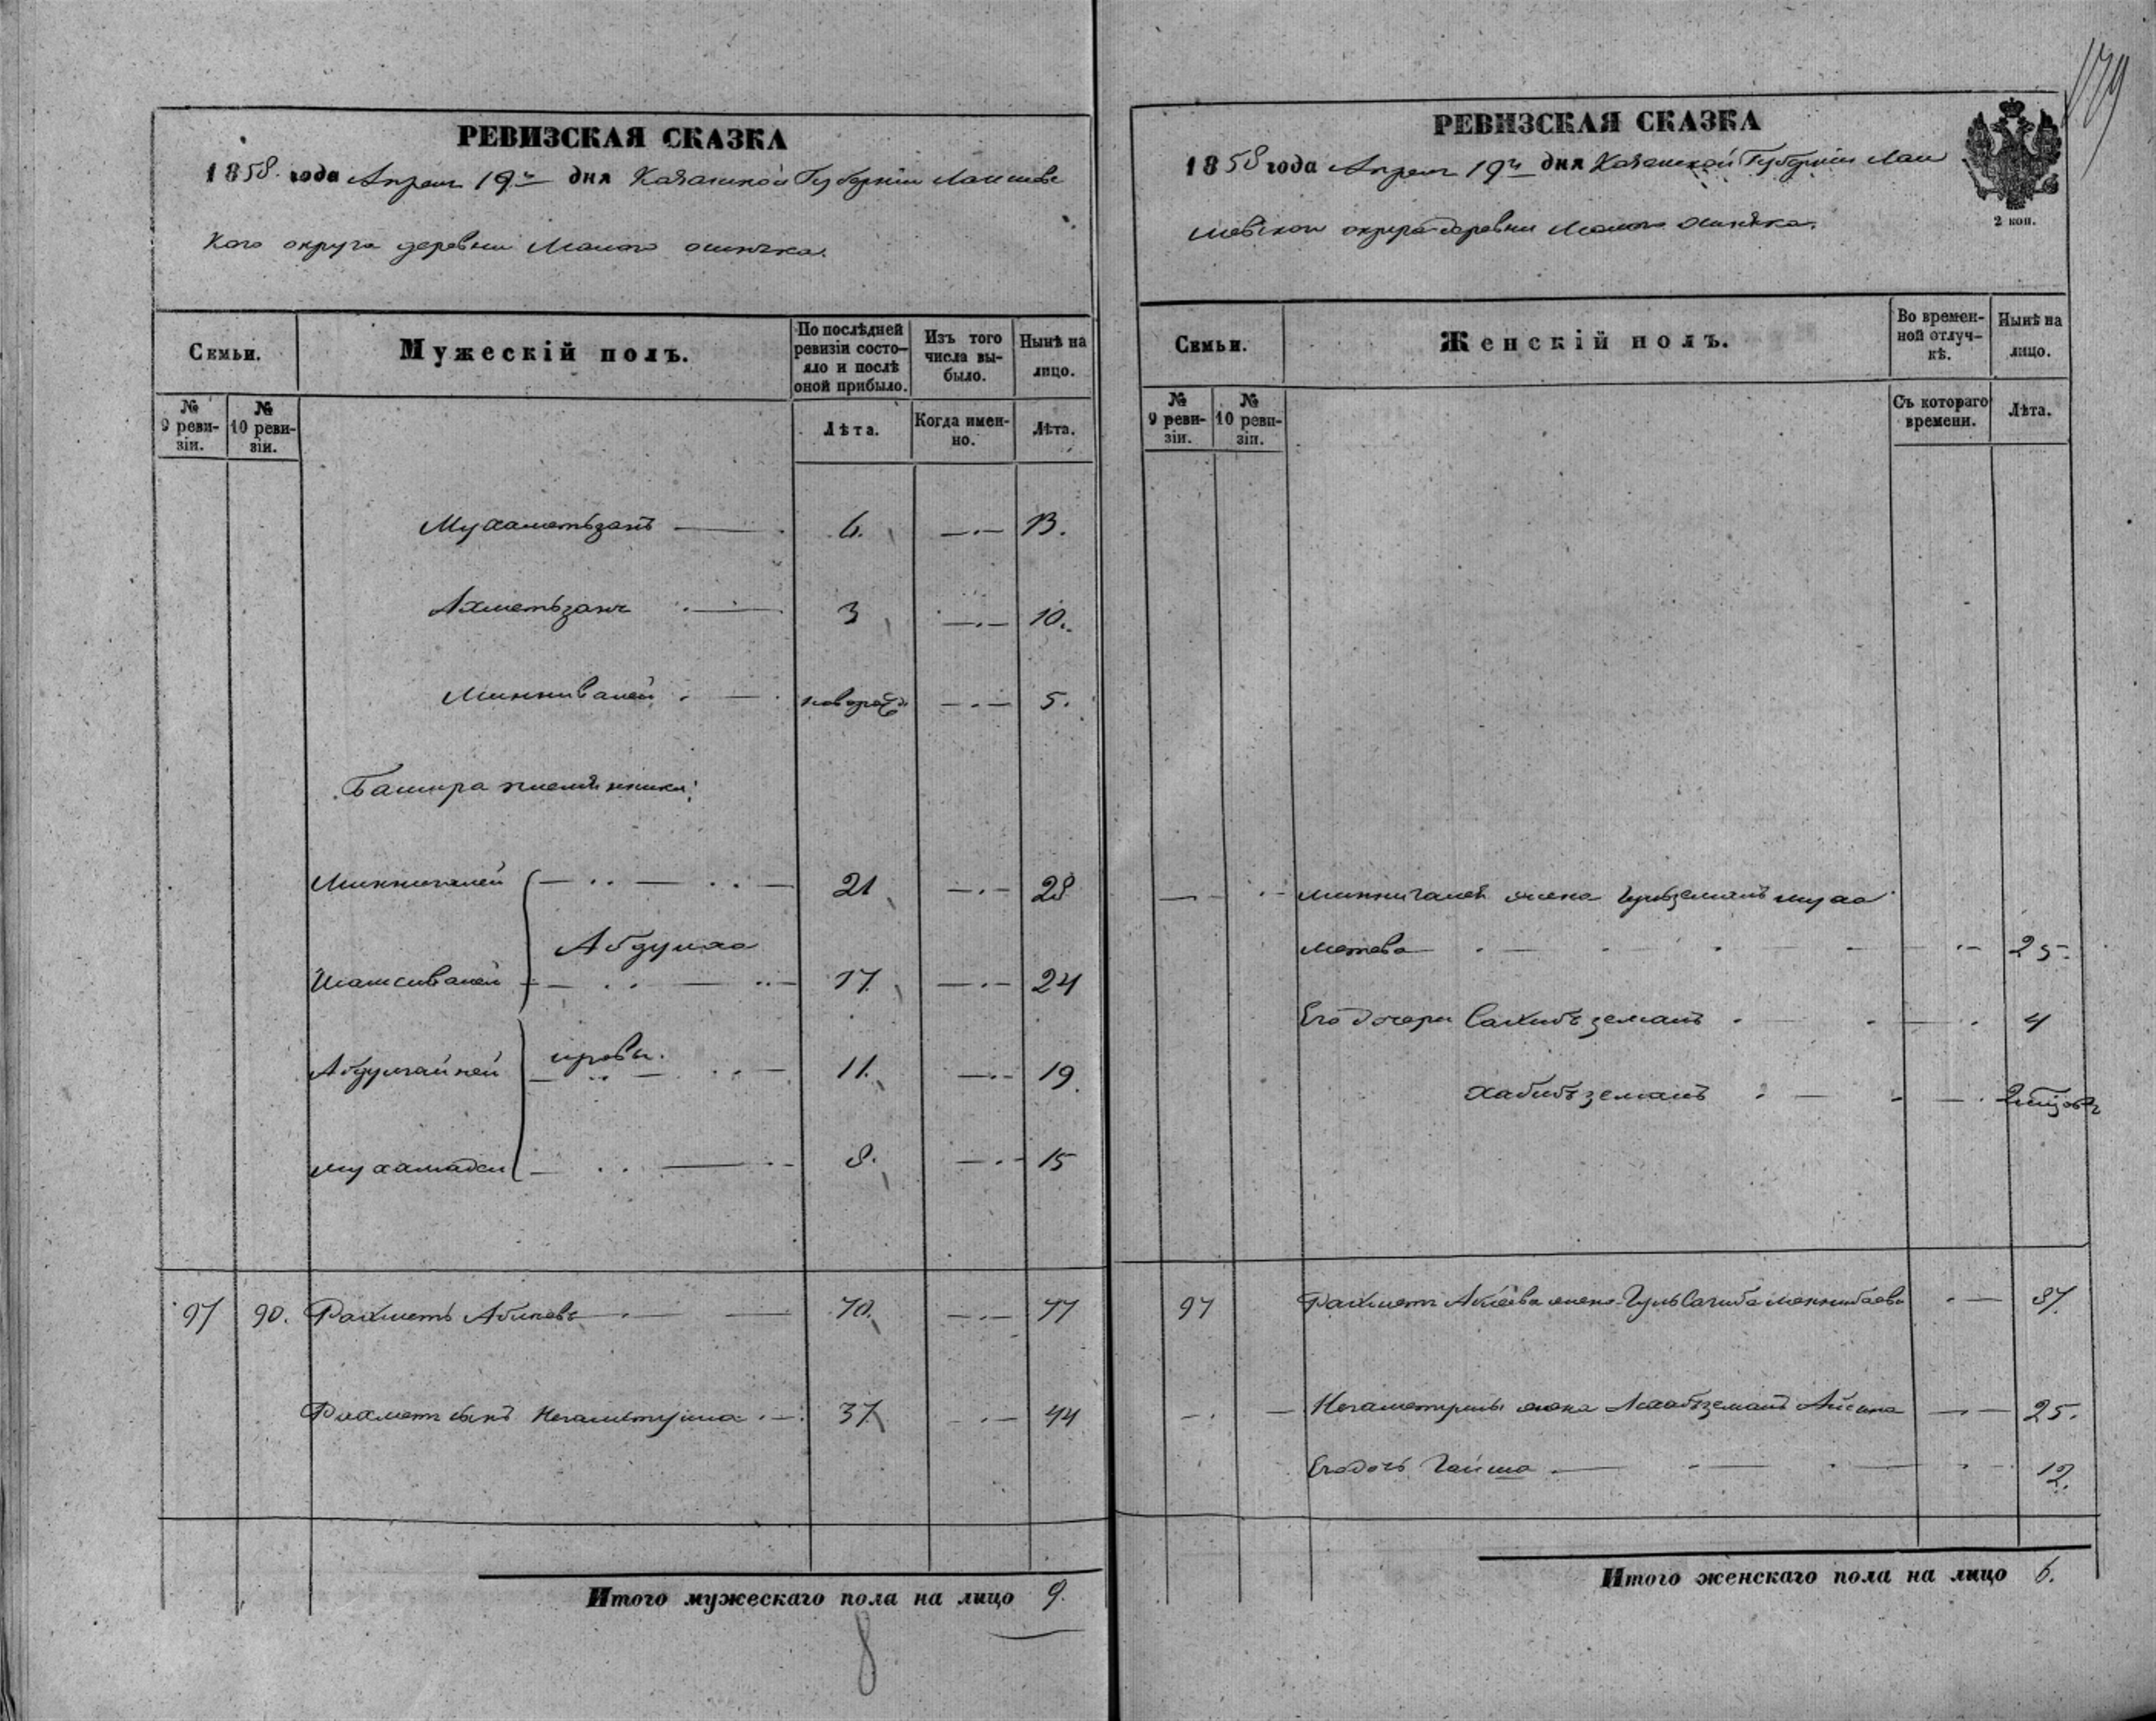 179
РЕВИЗСКАЯ СКАЗКА
1858. года Апреля 19го дня Казанской Губерніи Лаишевс
кого округа деревни Малого ошняка.
Семьи.
Мужескій полъ.
По послѣдней ревизіи состо-
яло и послѣ оной прибыло.
Изъ того числа вы-
было.
Нынѣ на лицо.
№ 9 реви-
зіи.
№ 10 реви-
зіи.
Лѣта.
Когда имен-
но.
Лѣта.
Мухаметьзянъ 6. 13.
Ахметьзянъ 3 10.
Миннивалей новорожд. 5.
Башира племянники:
Миннигалей 21 28
Абдулха
Шамсивалей 17. 24
Абдулгайней 11. 19
Мухамадеи 8. 15
97 90. Рахметъ Абикевъ 70. 77
Рахмета сынъ Негаметулла 37. 44
Итого мужескаго пола на лицо 9.
8
РЕВИЗСКАЯ СКАЗКА
1858 года Апреля 19го дня Казанской Губерніи Лаи
шевского округа деревни Малого Ошняка.
2 коп.
Семьи.
Женскій полъ.
Во времен-
ной отлуч-
кѣ.
Нынѣ на лицо.
№ 9 реви-
зіи.
№ 10 реви-
зіи.
Съ котораго времени.
Лѣта.
Миннигалея жена Гульземалъ муха
метева 25.
Его дочери Сахибъземалъ 4
Хабибъземалъ
97 Рахмета жена
Негаметуллы жена 25.
Его дочь Гайша 12.
Итого женскаго пола на лицо 6.